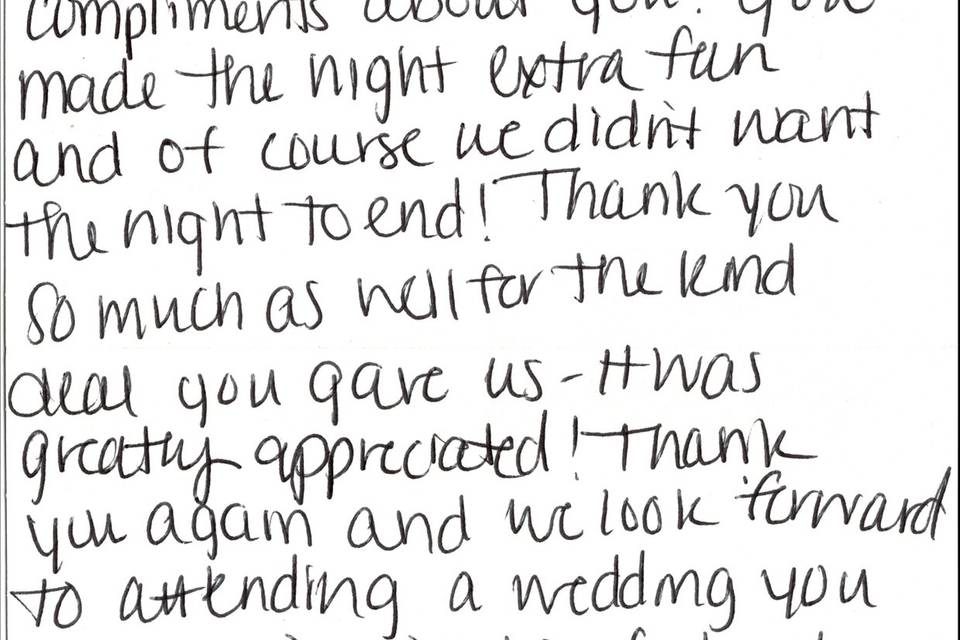 compliments about you! You
made the night extra fun
and of course we didn't want
the night to end! Thank you
so much as well for the kind
deal you gave us - It was
greatly appreciated! Thank
you again and we look forward
to attending a wedding you